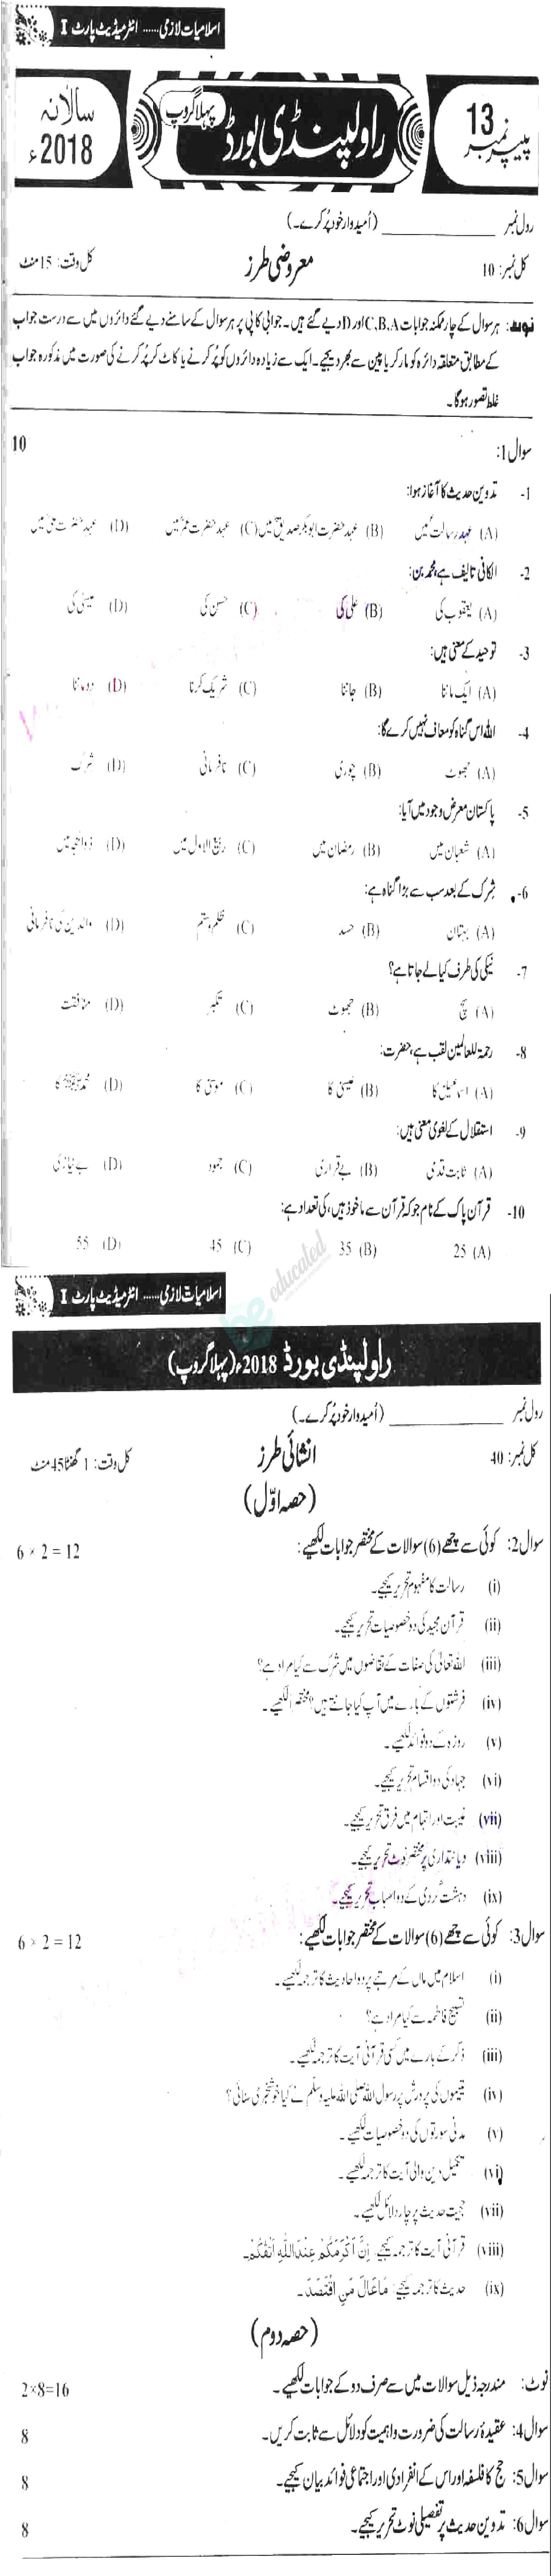 اسلامیات لازمی ...... انٹرمیڈیٹ پارٹ I
پیپر نمبر 13
راولپنڈی بورڈ
پہلا گروپ
سالانہ 2018ء
رول نمبر ____________ (اُمیدوار خود پُر کرے۔)
کل نمبر: 10 معروضی طرز کل وقت: 15 منٹ
نوٹ: ہر سوال کے چار ممکنہ جوابات C,B,A اور D دیے گئے ہیں۔ جوابی کاپی پر ہر سوال کے سامنے دیے گئے دائروں میں سے درست جواب
کے مطابق متعلقہ دائرہ کو مارکر یا پین سے بھر دیجیے۔ ایک سے زیادہ دائروں کو پُر کرنے یا کاٹ کر پُر کرنے کی صورت میں مذکورہ جواب
غلط تصور ہوگا۔
سوال 1: 10
1- تدوین حدیث کا آغاز ہوا:
(A) عہد رسالت میں (B) عہد حضرت ابوبکر صدیق میں (C) عہد حضرت عمر میں (D) عہد حضرت علی میں
2- الکافی تالیف ہے، محمد بن:
(A) یعقوب کی (B) علی کی (C) حسن کی (D) عیسیٰ کی
3- توحید کے معنی ہیں:
(A) ایک ماننا (B) جاننا (C) شریک کرنا (D) دو ماننا
4- اللہ اس گناہ کو معاف نہیں کرے گا:
(A) جھوٹ (B) چوری (C) نافرمانی (D) شرک
5- پاکستان معرض وجود میں آیا:
(A) شعبان میں (B) رمضان میں (C) ربیع الاول میں (D) ذوالحجہ میں
6- شرک کے بعد سب سے بڑا گناہ ہے:
(A) بہتان (B) حسد (C) ظلم و ستم (D) والدین کی نافرمانی
7- نیکی کی طرف کیا لے جاتا ہے؟
(A) سچ (B) جھوٹ (C) تکبر (D) منافقت
8- رحمۃ للعالمین لقب ہے، حضرت:
(A) اسماعیل کا (B) عیسیٰ کا (C) موسیٰ کا (D) محمد ﷺ کا
9- استقلال کے لغوی معنی ہیں:
(A) ثابت قدمی (B) بے قراری (C) جمود (D) بے نیازی
10- قرآن پاک کے نام جو کہ قرآن سے ماخوذ ہیں، کی تعداد ہے:
(A) 25 (B) 35 (C) 45 (D) 55
be educated
اسلامیات لازمی ...... انٹرمیڈیٹ پارٹ I
راولپنڈی بورڈ 2018ء (پہلا گروپ)
رول نمبر ____________ (اُمیدوار خود پُر کرے۔)
کل نمبر: 40 انشائی طرز کل وقت: 1 گھنٹا 45 منٹ
(حصہ اوّل)
سوال 2: کوئی سے چھے (6) سوالات کے مختصر جوابات لکھیے: 6 × 2 = 12
(i) رسالت کا مفہوم تحریر کیجیے۔
(ii) قرآن مجید کی دو خصوصیات تحریر کیجیے۔
(iii) اللہ تعالیٰ کی صفات کے تقاضوں میں شرک سے کیا مراد ہے؟
(iv) فرشتوں کے بارے میں آپ کیا جانتے ہیں؟ مختصراً لکھیے۔
(v) روزہ کے دو فوائد لکھیے۔
(vi) جہاد کی دو اقسام تحریر کیجیے۔
(vii) غیبت اور اتہام میں فرق تحریر کیجیے۔
(viii) دیانتداری پر مختصر نوٹ تحریر کیجیے۔
(ix) دہشت گردی کے دو اسباب تحریر کیجیے۔
سوال 3: کوئی سے چھے (6) سوالات کے مختصر جوابات لکھیے: 6 × 2 = 12
(i) اسلام میں ماں کے مرتبے پر دو احادیث کا ترجمہ لکھیے۔
(ii) تسبیح فاطمہ سے کیا مراد ہے؟
(iii) ذکر کے بارے میں کسی قرآنی آیت کا ترجمہ لکھیے۔
(iv) یتیموں کی پرورش پر رسول اللہ صلی اللہ علیہ وسلم نے کیا خوشخبری سنائی؟
(v) مدنی سورتوں کی دو خصوصیات لکھیے۔
(vi) تکمیل دین والی آیت کا ترجمہ لکھیے۔
(vii) حجیت حدیث پر چار دلائل لکھیے۔
(viii) قرآنی آیت کا ترجمہ کیجیے: اِنَّ اَكْرَمَكُمْ عِنْدَاللّٰهِ اَتْقٰكُمْ۔
(ix) حدیث کا ترجمہ کیجیے: مَاعَالَ مَنِ اقْتَصَدَ۔
(حصہ دوم)
نوٹ: مندرجہ ذیل سوالات میں سے صرف دو کے جوابات لکھیے۔ 2×8=16
سوال 4: عقیدۂ رسالت کی ضرورت و اہمیت کو دلائل سے ثابت کریں۔ 8
سوال 5: حج کا فلسفہ اور اس کے انفرادی اور اجتماعی فوائد بیان کیجیے۔ 8
سوال 6: تدوین حدیث پر تفصیلی نوٹ تحریر کیجیے۔ 8